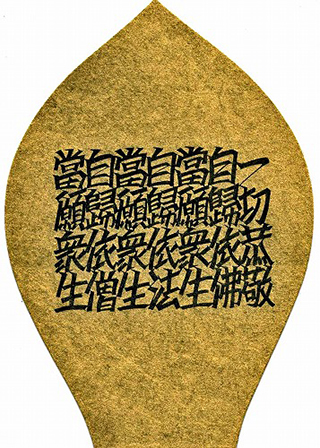 一切恭敬
自歸依佛
當願衆生
自歸依法
當願衆生
自歸依僧
當願衆生